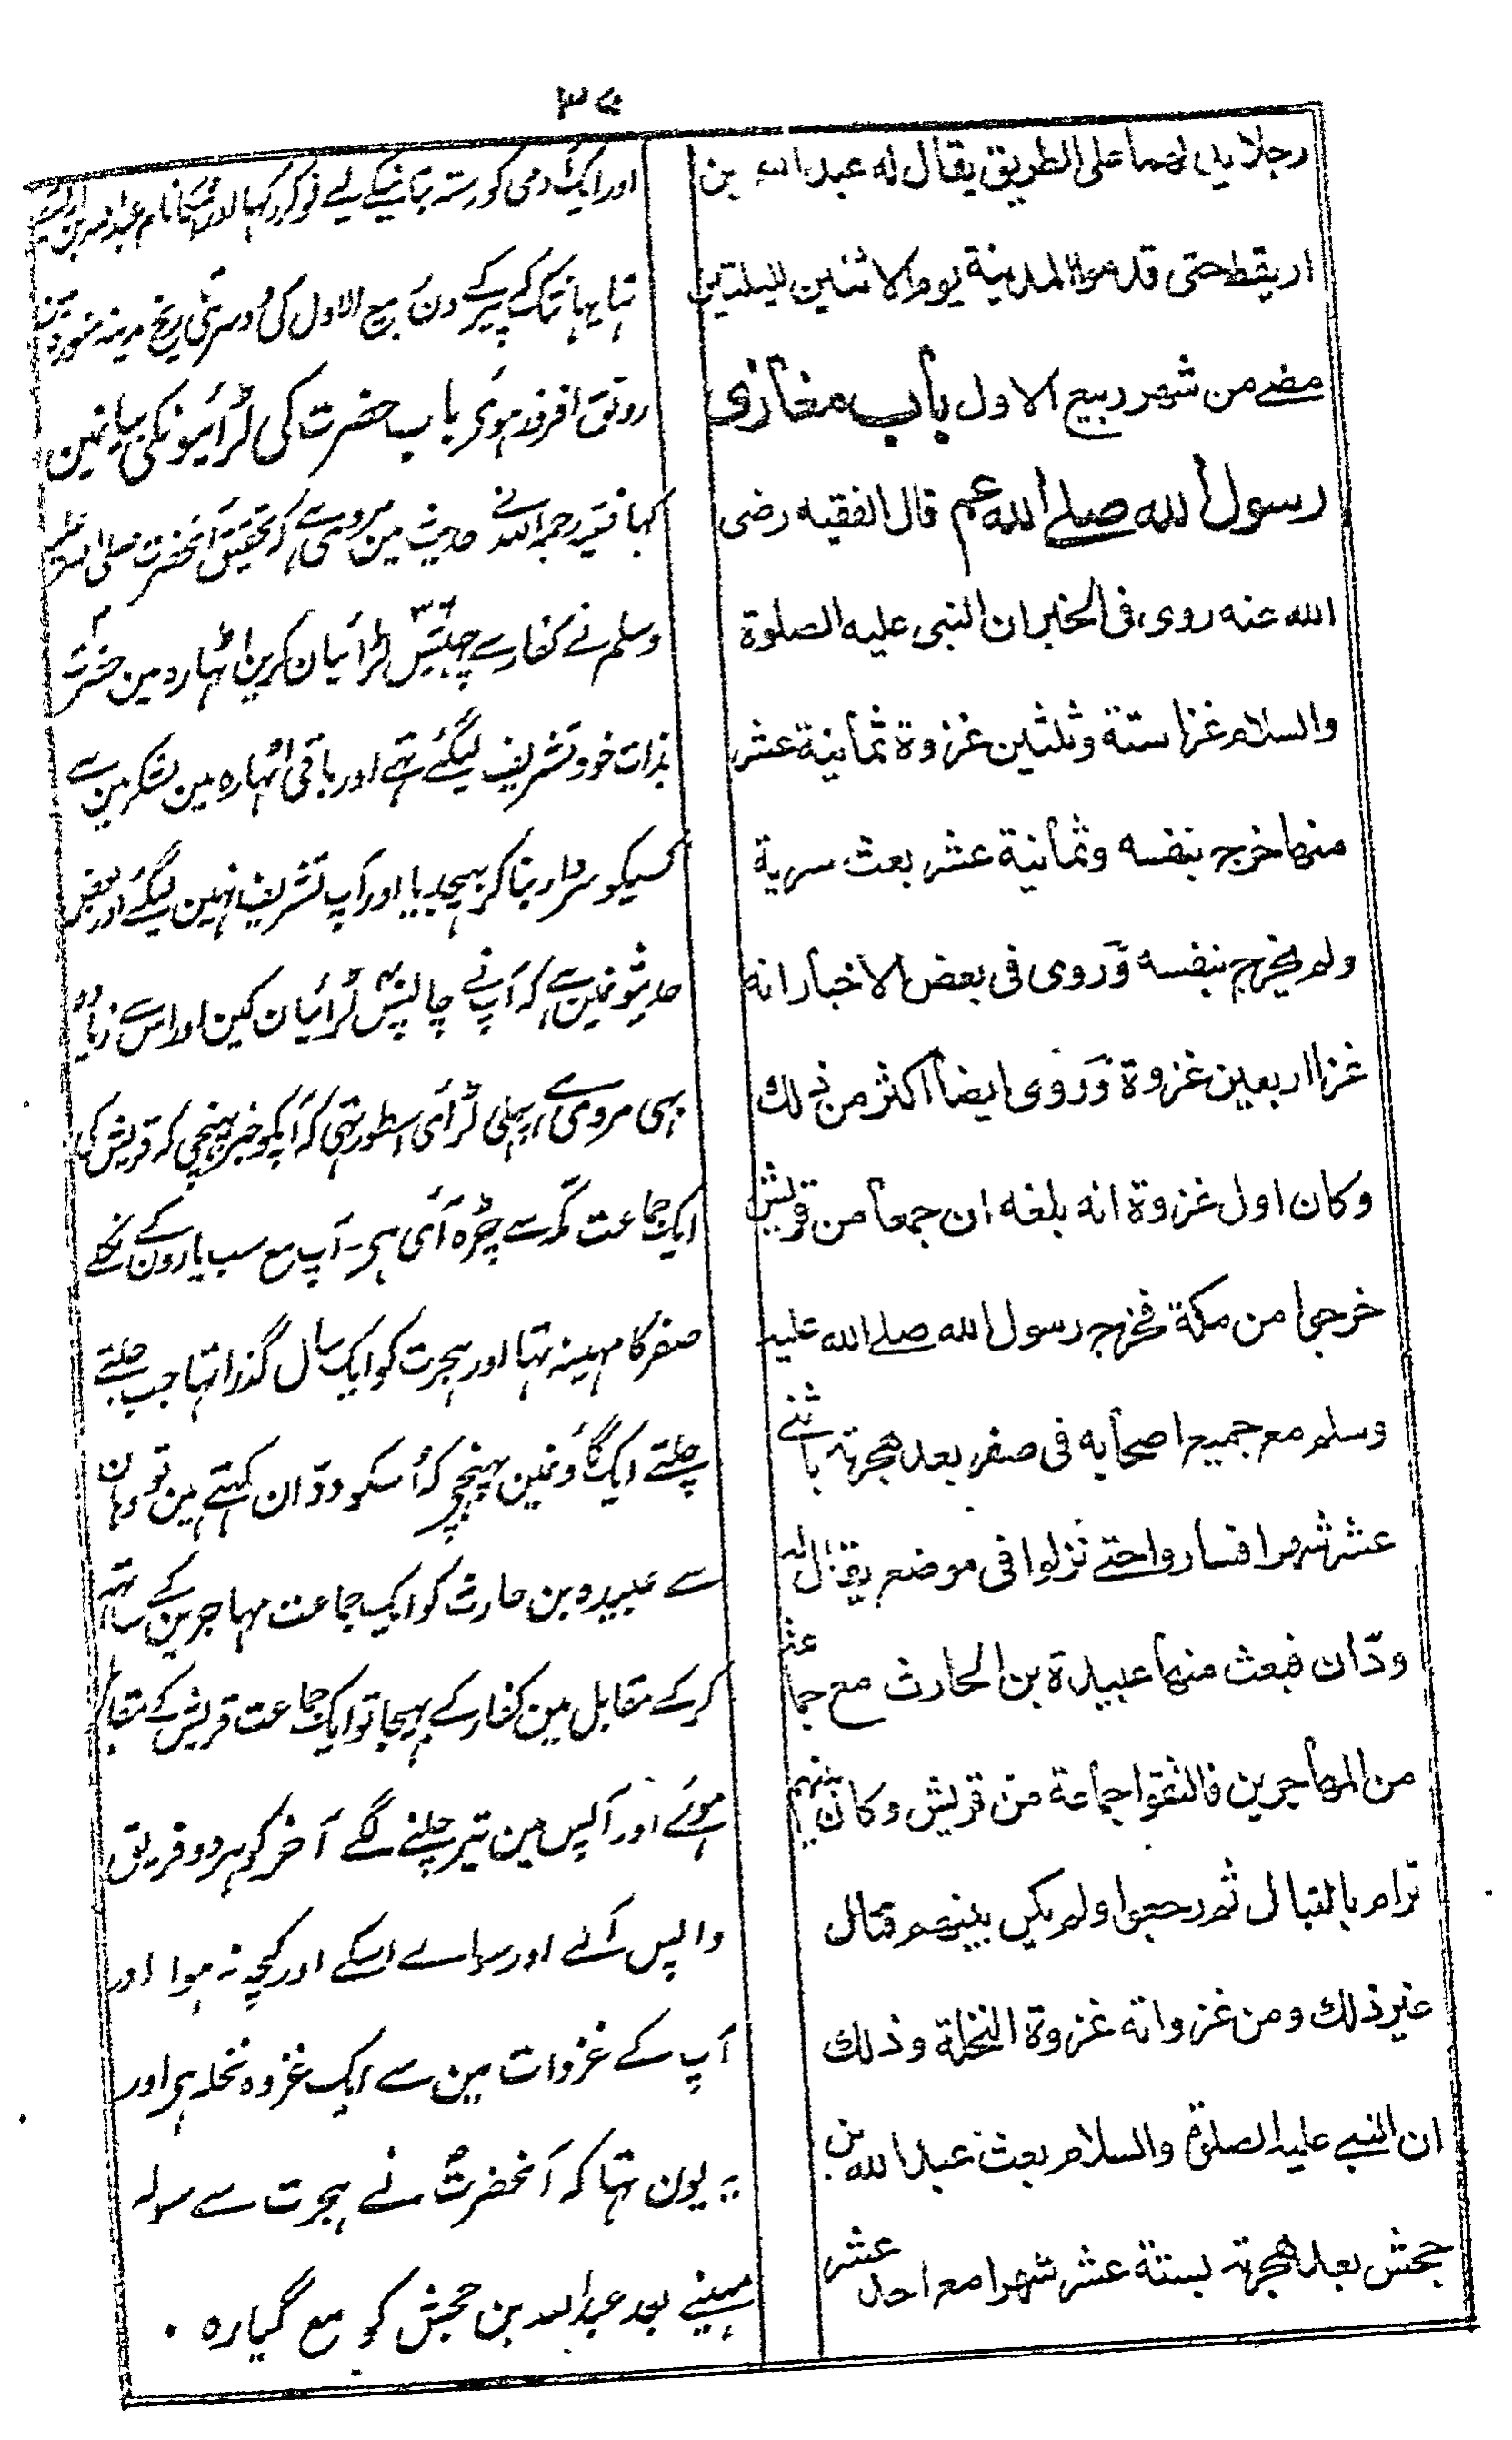 رجلا يدلهما على الطريق يقال له عبد الله بن
اريقط حتى قدموا المدينة يوم الاثنين لليلتين
مضے من شهر ربيع الاول باب مغازی
رسول الله صلے الله عم قال الفقيه رضی
الله عنه روی فی الخبر ان النبی عليه الصلوة
والسلام غزا ستة وثلثين غزوة ثمانية عشر
منها خرج بنفسه وثمانية عشر بعث سرية
ولم يخرج بنفسه وروی فی بعض الاخبار انه
غزا اربعين غزوة وروی ايضا اكثر من ذلك
وكان اول غزوة انه بلغه ان جمعا من قريش
خرجوا من مكة فخرج رسول الله صلے الله عليه
وسلم مع جميع اصحابه فی صفر بعد هجرته باثنے
عشر شهرا فساروا حتے نزلوا فی موضع يقال له
ودّان فبعث منها عبيدة بن الحارث مع جماعة
من المهاجرين فالتقوا جماعة من قريش وكان بينهم
ترام بالنبال ثم رجعوا ولم يكن بينهم قتال
غير ذلك ومن غزواته غزوة النخلة وذلك
ان النبے عليه الصلوة والسلام بعث عبد الله بن
جحش بعد هجرته بستة عشر شهرا مع احد عشر
٣٥
اور ایک آدمی کو رستہ بتانیکے لیے نوکر رکہا اور اسکا نام عبد اللہ بن
تہا یہانتک کہ پیر کے دن ربیع الاول کی دوسری تاریخ مدینہ منورہ مین
رونق افروز ہوئی باب حضرت کی لڑائیونکی بیانمین
کہا فقیہ رحمہ اللہ نے حدیث مین مروی ہے کہ تحقیق آنحضرت صلی اللہ علیہ
وسلم نے کفار سے چہتیس ٣٦ لڑائیان کرین اٹہارہ مین حضرت
بذات خود تشریف لیگئے تہے اور باقی اٹہارہ مین لشکر مین سے
کسیکو سردار بنا کر بہیجدیا اور آپ تشریف نہین لیگئے اور بعض
حدیثونمین ہے کہ آپ نے چالیس لڑائیان کین اور اس سے زیادہ
بہی مروی ہے پہلی لڑائی اسطور تہی کہ آپکو خبر پہنچی کہ قریش کی
ایک جماعت مکہ سے چڑہ آئی ہی۔ آپ مع سب یارون کے نکلے
صفر کا مہینہ تہا اور ہجرت کو ایک سال گذرا تہا جب چلتے
چلتے ایک گاؤنمین پہنچے کہ اُسکو ودّان کہتے ہین تو وہان
سے عبیدہ بن حارث کو ایک جماعت مہاجرین کے ساتہہ
کر کے مقابل مین کفار کے بہیجا تو ایک جماعت قریش کے مقابل
ہوئے اور آپس مین تیر چلنے لگے آخر کو ہر دو فریق
واپس آئے اور سواے اسکے اور کچہ نہ ہوا اور
آپ کے غزوات مین سے ایک غزوہ نخلہ ہی اور
یہ یون تہا کہ آنحضرت نے ہجرت سے سولہ
مہینے بعد عبد اللہ بن جحش کو مع گیارہ ٠